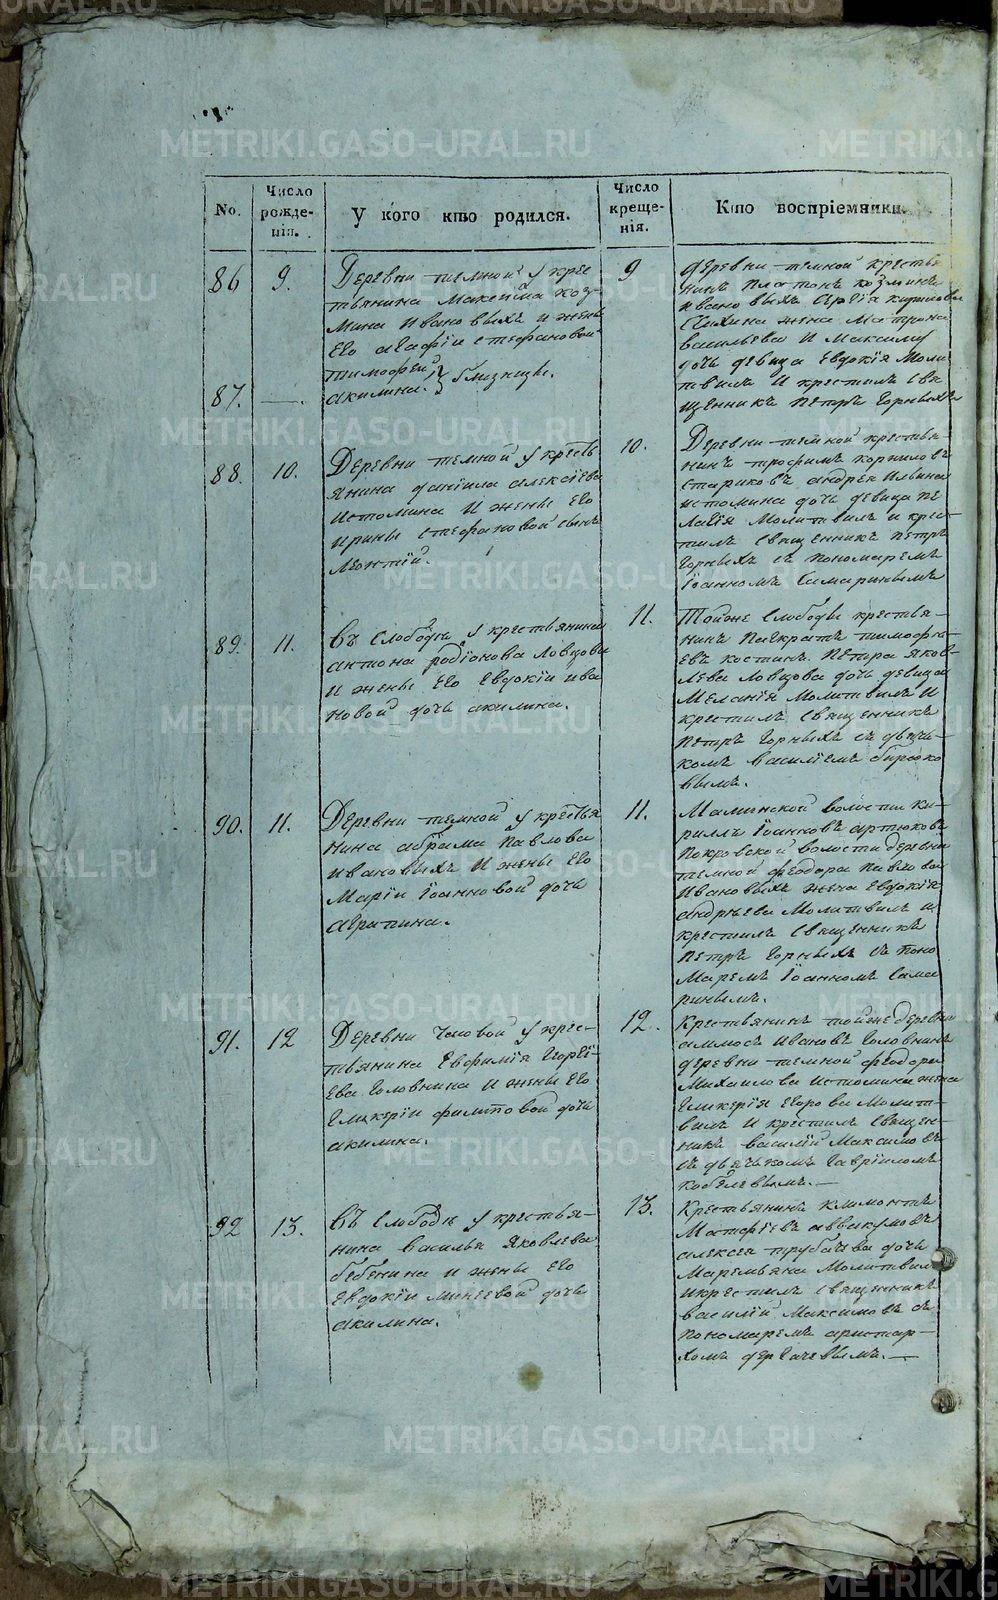 No.
Число рожденія.
У кого кто родился.
Число крещенія.
Кто воспріемники.
86
9.
Деревни темной у крес
тьянина Максима коз-
мина ивановыхъ и жены
его агафіи стефановой
тимофей
87.
акилина. близнецы.
9
деревни темной крестья
нинъ платонъ козминъ
ивановыхъ сергія
жена матрона
васильева и максима
дочь девица евдокія моли
твилъ и крестилъ свя
щенникъ петръ горныхъ
88.
10.
Деревни темной у кресть
янина даніила алексіева
истомина и жены его
ирины стефановой сынъ
леонтій.
10.
Деревни темной крестья-
нинъ трофимъ корниловъ
стариковъ андрея ильина
истомина дочь девица пе
лагія молитвилъ и крес-
тилъ священникъ петръ
горныхъ съ пономаремъ
іоанномъ самаринымъ
89.
11.
Въ слободѣ у крестьянина
антона родіонова ловцова
и жены его евдокіи ива
новой дочь акилина.
11.
Тойже слободы крестья-
нинъ панкратъ тимофѣ-
евъ костинъ. петра яков-
лева ловцова дочь девица
меланія молитвилъ и
крестилъ священникъ
петръ горныхъ съ дьяч-
комъ василіемъ бирюко
вымъ.
90.
11.
Деревни темной у крестья
нина абрама павлова
ивановыхъ и жены его
маріи іоанновой дочь
аграпина.
11.
Маминской волости ки-
риллъ іоанновъ артюховъ
покровской волости деревни
темной феодора павлова
ивановыхъ жена евдокія
андрѣева молитвилъ и
крестилъ священникъ
петръ горныхъ съ поно
маремъ іоанномъ сама
ринымъ.
91.
12
Деревни часовой у крес-
тьянина евфимія георгі-
ева головнина и жены его
гликеріи филиповой дочь
акилина.
12.
крестьянинъ тойже деревни
аммосъ ивановъ головнинъ
деревни темной феодора
михаилова истомина жена
гликерія егорова молит-
вилъ и крестилъ священ-
никъ василій максимовъ
съ дьячькомъ гавріиломъ
кобелевымъ.
92
13.
Въ слободѣ у крестья-
нина василья яковлева
бебенина и жены его
евдокіи минеевой дочь
акилина.
13.
Крестьянинъ климонтъ
матфіевъ аввакумовъ
алексея трубачева дочь
маремьяна молитвилъ
и крестилъ священникъ
василій максимовъ съ
пономаремъ аристар-
хомъ дергачевымъ.
METRIKI.GASO-URAL.RU